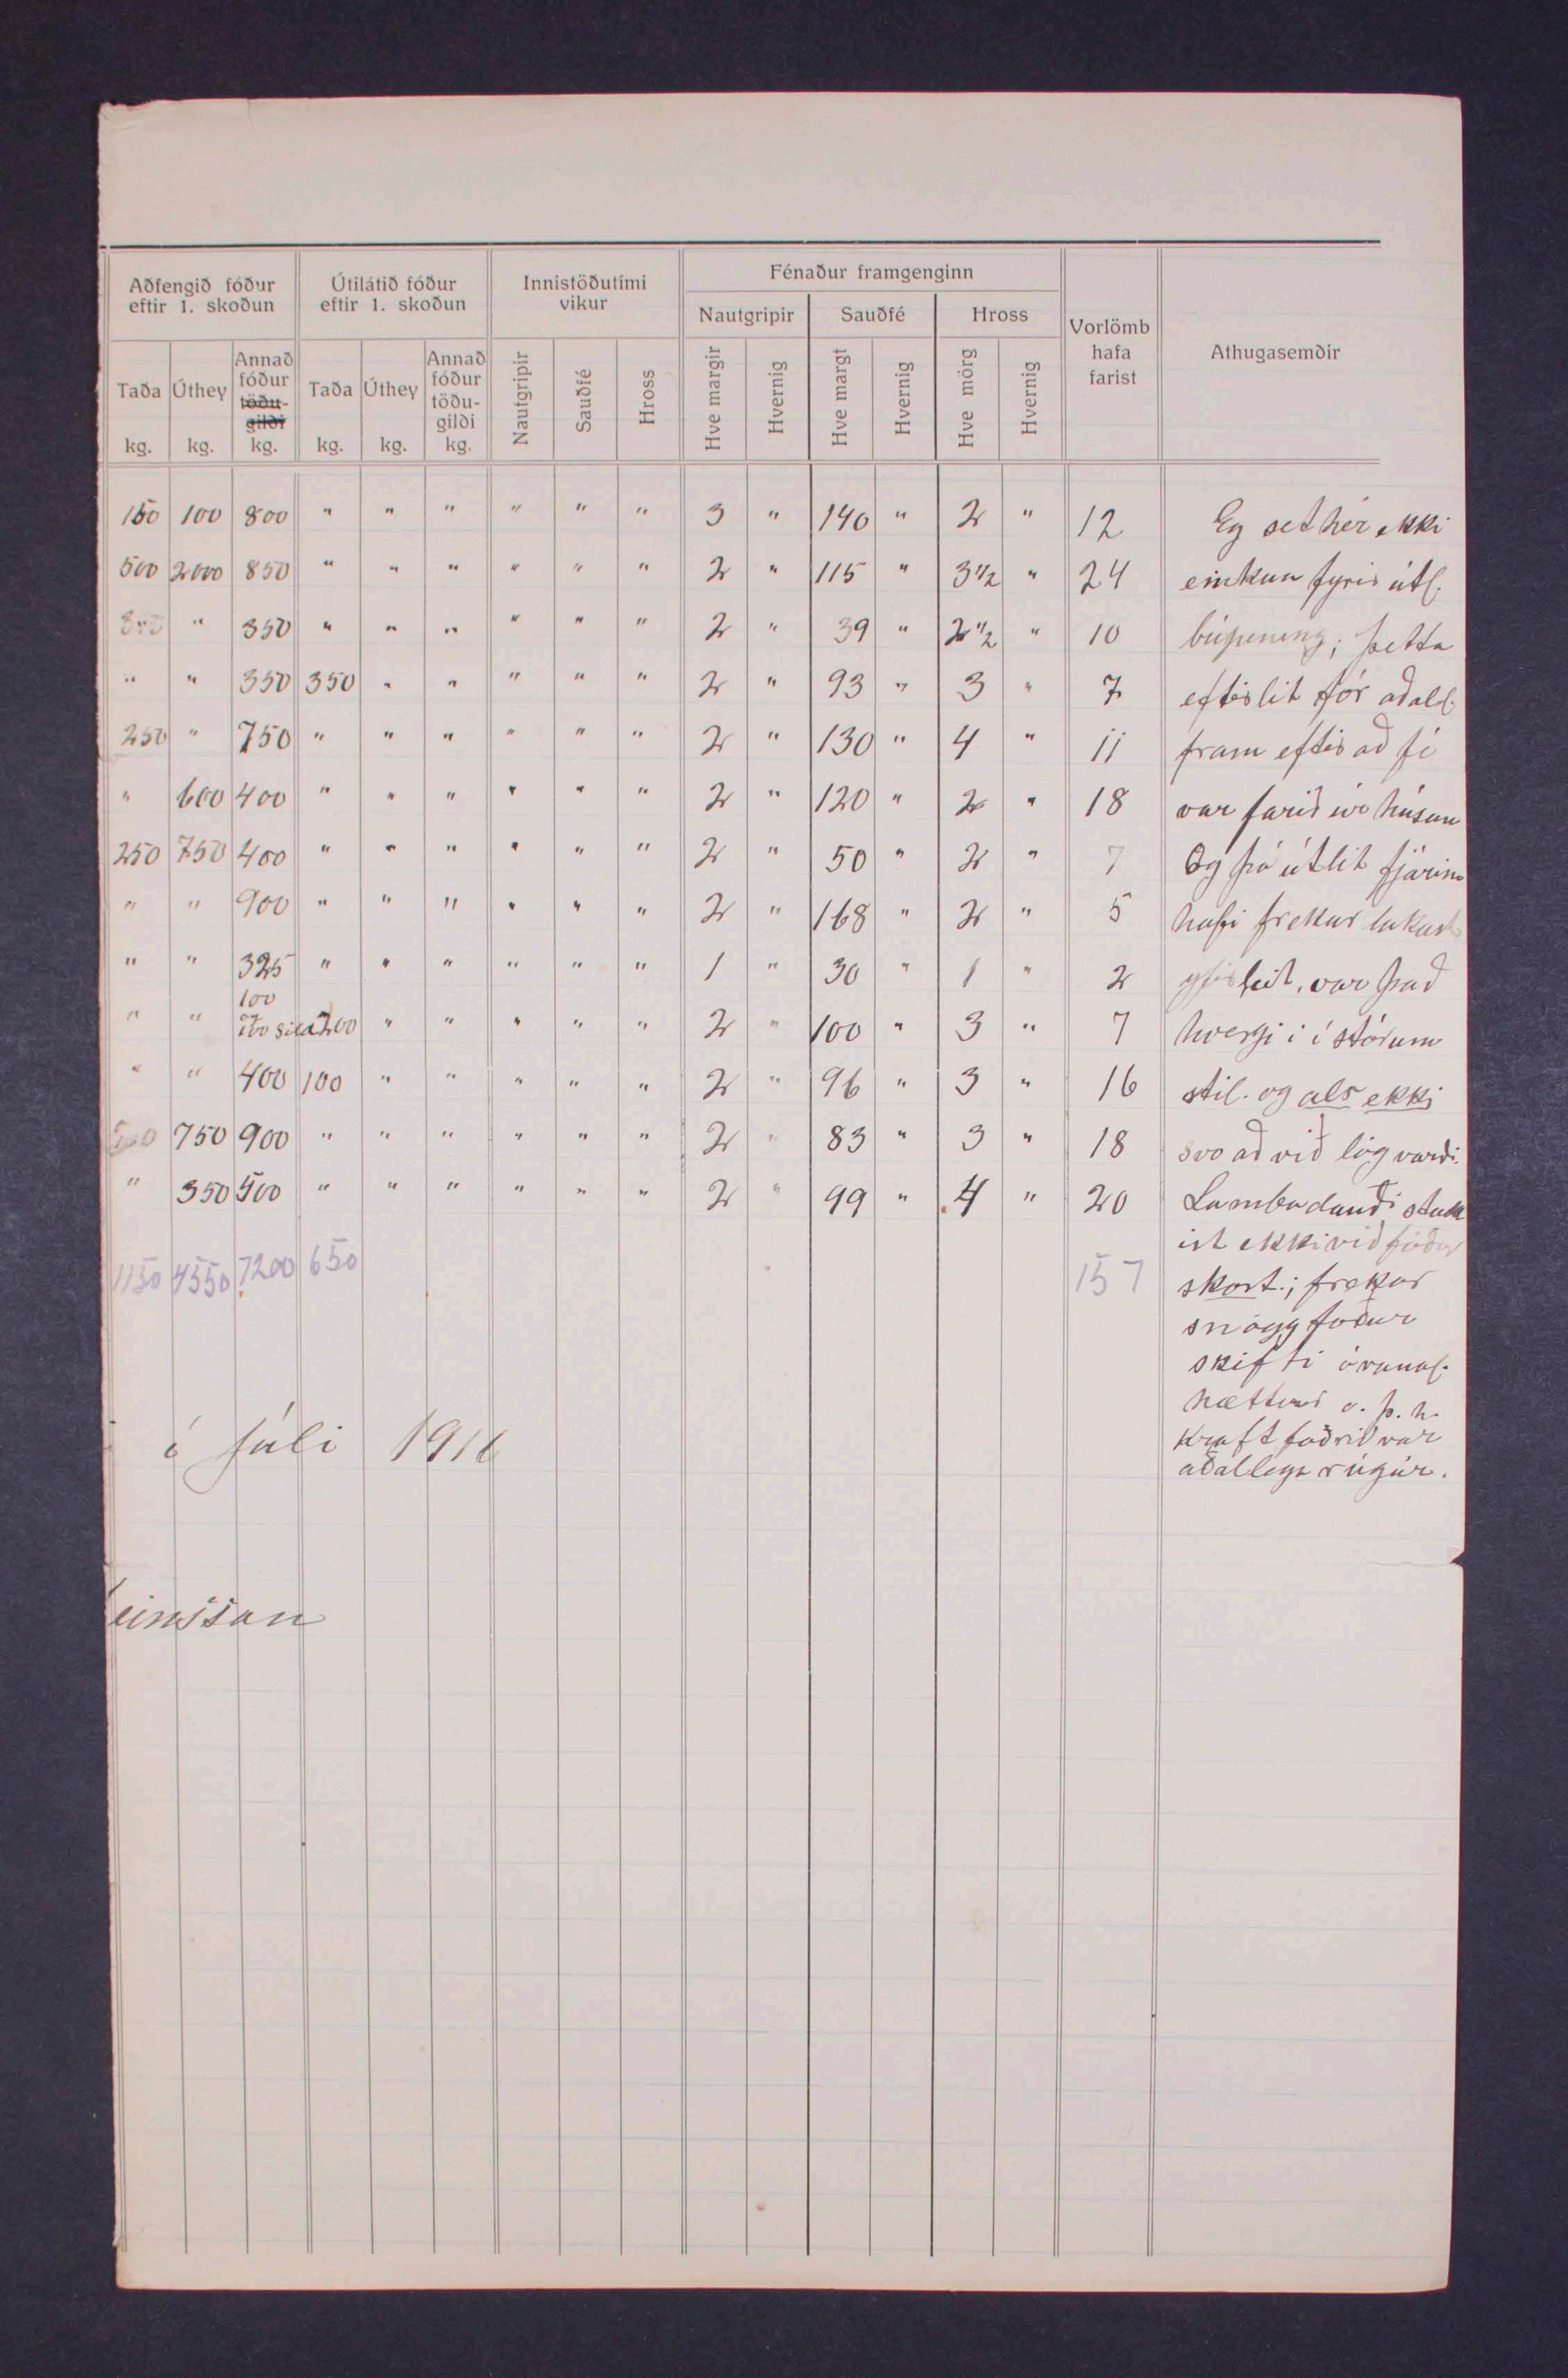 Aðfengið fóður eftir 1. skoðun | Útilátið fóður eftir 1. skoðun | Innistöðutími vikur | Fénaður framgenginn | Vorlömb hafa farist | Athugasemdir
Nautgripir | Sauðfé | Hross
Taða kg. | Úthey kg. | Annað fóður töðu-gildi kg. | Taða kg. | Úthey kg. | Annað fóður töðu-gildi kg. | Nautgripir | Sauðfé | Hross | Hve margir | Hvernig | Hve margt | Hvernig | Hve mörg | Hvernig
150 | 100 | 800 | " | " | " | " | " | " | 3 | " | 140 | " | 2 | " | 12 | Eg set hér ekki
500 | 2000 | 850 | " | " | " | " | " | " | 2 | " | 115 | " | 3 1/2 | " | 24 | einkun fyrir útl.
" | 350 | " | " | " | " | " | " | 2 | " | 39 | " | 2 1/2 | " | 10 | búpening; þetta
" | " | 350 | 350 | " | " | " | " | " | 2 | " | 93 | " | 3 | " | 7 | eftirlit fór aðall.
250 | " | 750 | " | " | " | " | " | " | 2 | " | 130 | " | 4 | " | 11 | fram eftir að fé
" | 600 | 400 | " | " | " | " | " | " | 2 | " | 120 | " | 2 | " | 18 | var farið úr húsum
250 | 750 | 400 | " | " | " | " | " | " | 2 | " | 50 | " | 2 | " | 7 | Og þó útlit fjárins
" | " | 900 | " | " | " | " | " | " | 2 | " | 168 | " | 2 | " | 5 | hafi frekar lakast
" | " | 325 | " | " | " | " | " | " | 1 | " | 30 | " | 1 | " | 2 | yfirleit, var það
" | " | 100 og 100 síld | 200 | " | " | " | " | " | 2 | " | 100 | " | 3 | " | 7 | hvergi í stórum
" | " | 400 | 100 | " | " | " | " | " | 2 | " | 96 | " | 3 | " | 16 | stíl. og als ekki
750 | 900 | " | " | " | " | " | " | 2 | " | 83 | " | 3 | " | 18 | svo að við lög varði.
" | 350 | 500 | " | " | " | " | " | " | 2 | " | 99 | " | 4 | " | 20 | Lambadauði staf
ist ekki við fóður
1150 | 4550 | 7200 | 650 | 157 | skort.; frekar
snögg fóður
skifti
hættur o. þ. h.
í júlí 1916 | kraftfóðrið var
aðallega rúgúr.
einsson